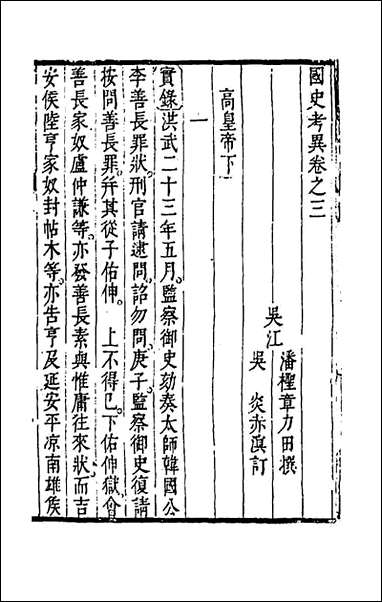 國史考異卷之三
吳江
潘檉章力田撰
吳 炎赤溟訂
高皇帝下
一
實錄洪武二十三年五月。監察御史劾奏太師韓國公
李善長罪狀。刑官請逮問。詔勿問。庚子。監察御史復請
按問善長罪。并其從子佑伸。 上不得已。下佑伸獄。會
善長家奴盧仲謙等。亦發善長素與惟庸往來狀。而吉
安侯陸亨家奴封帖木等。亦告亨及延安平凉南雄侯